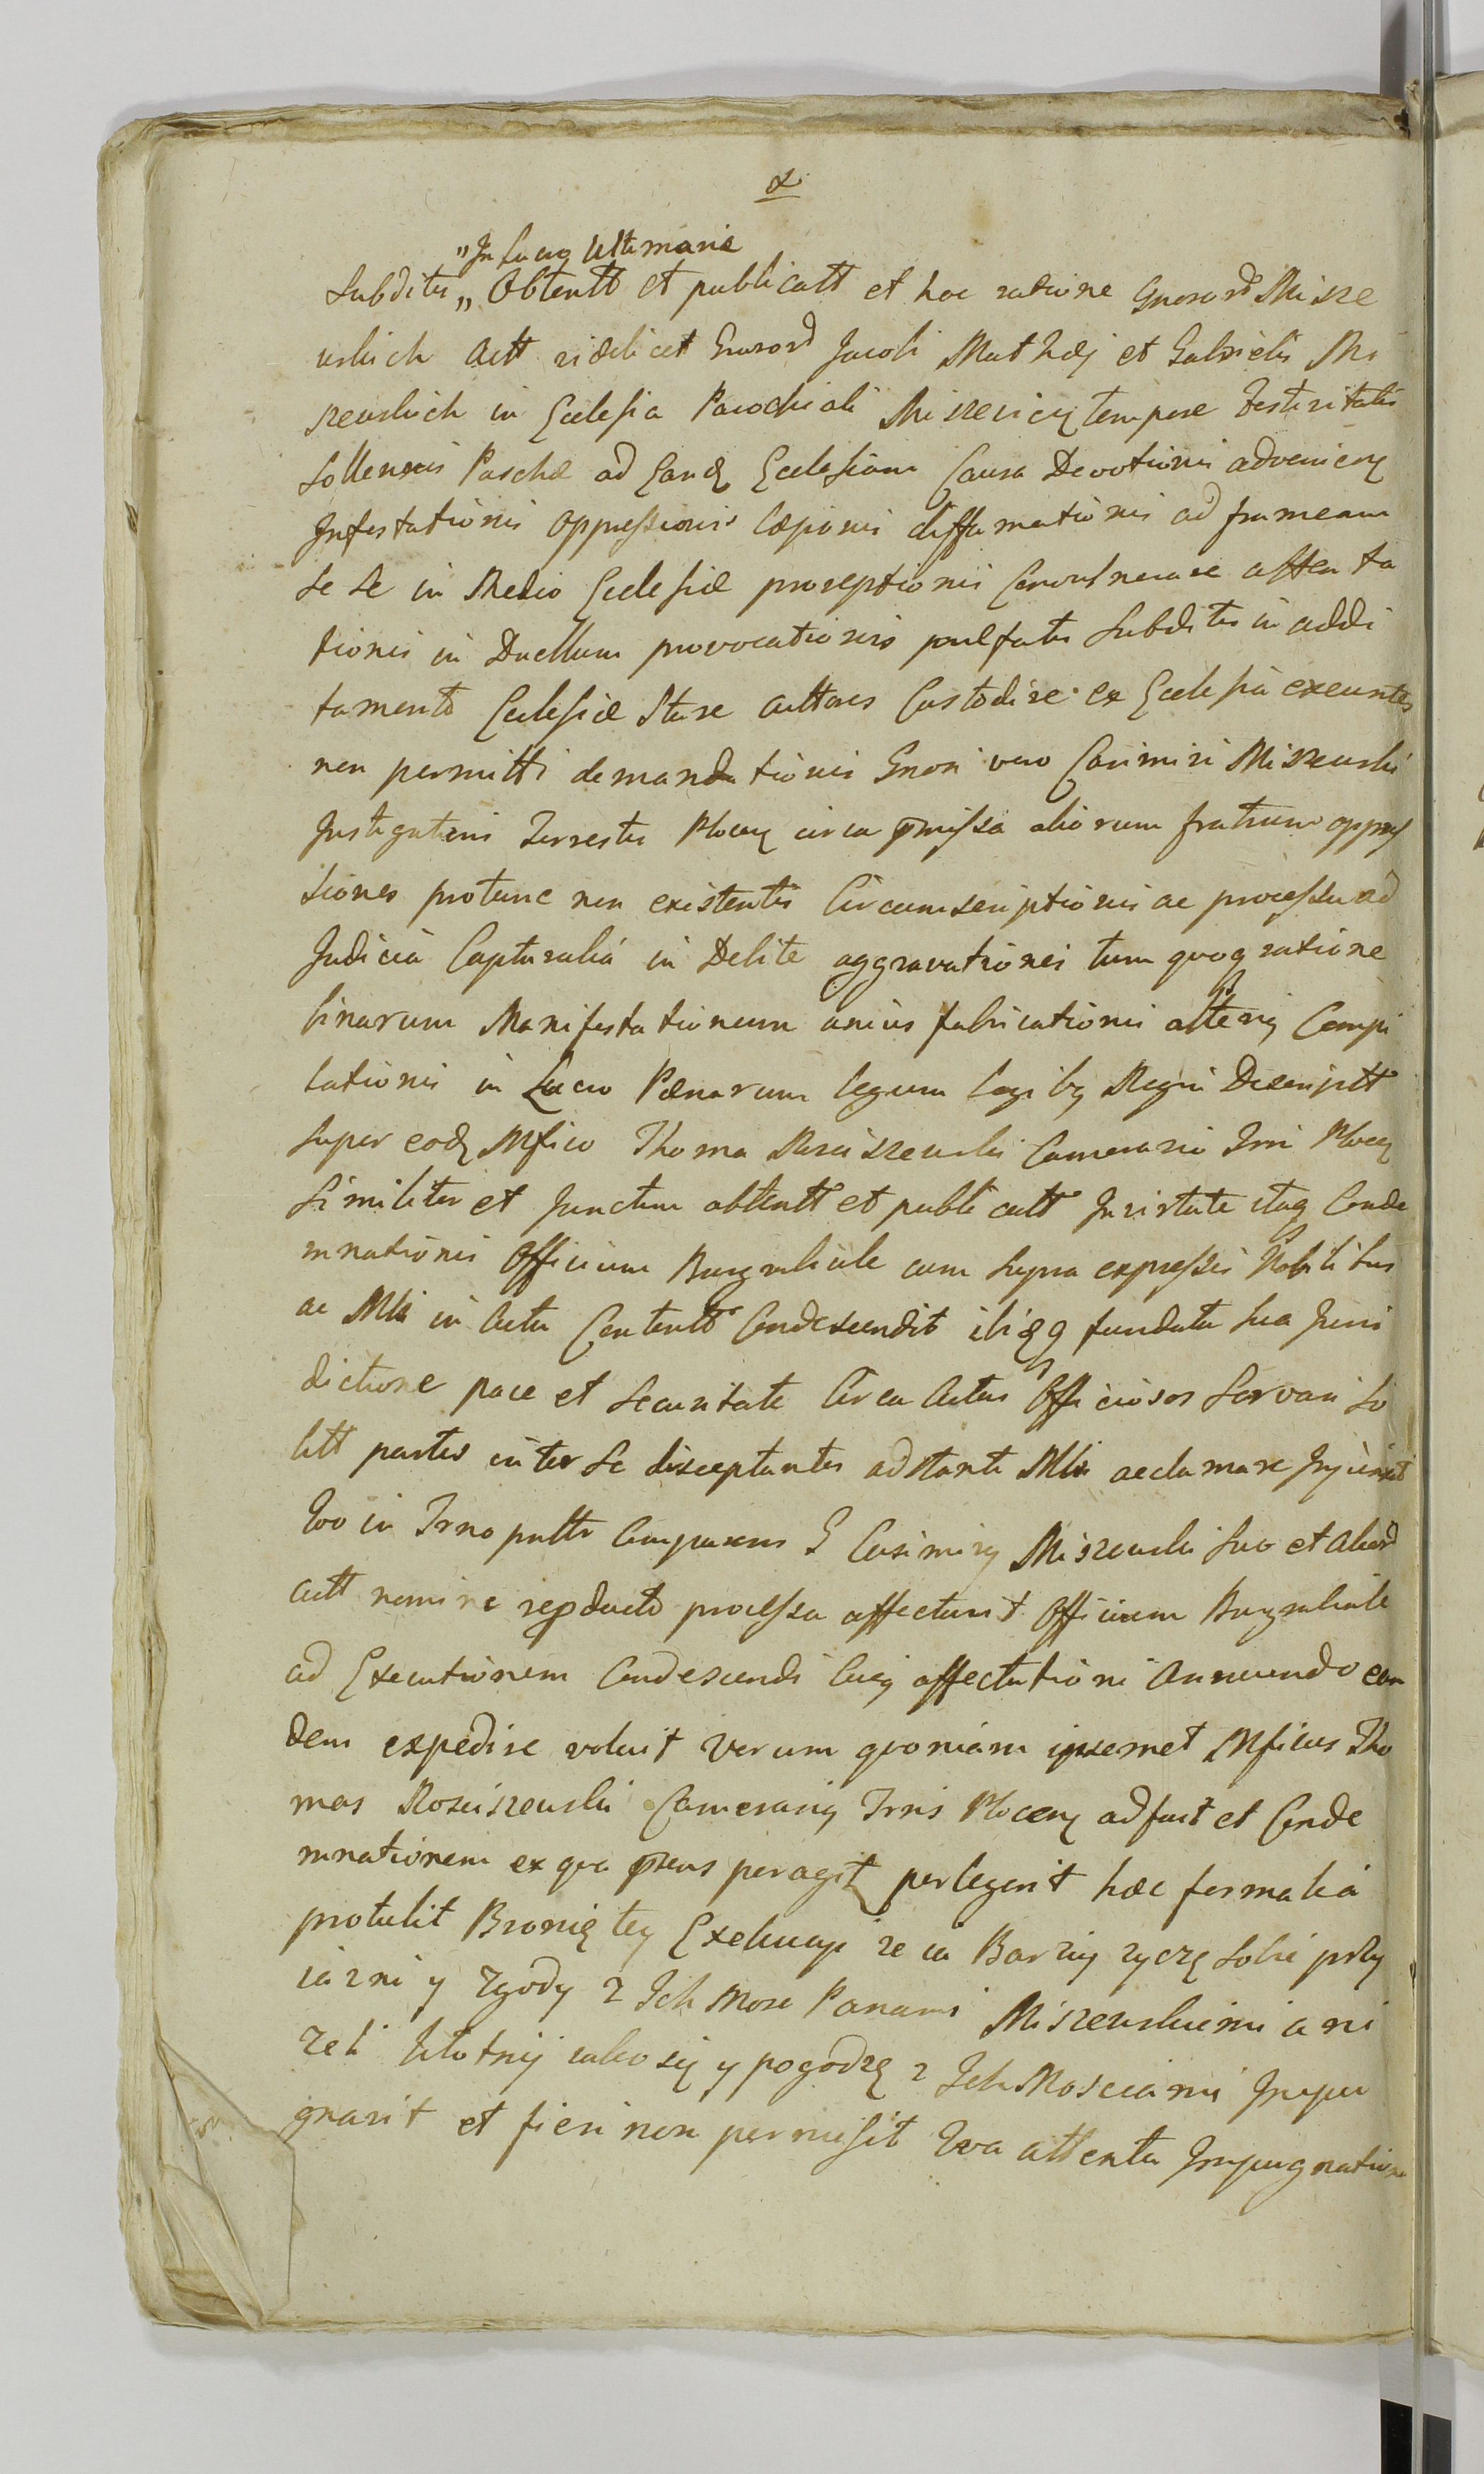 „In Lucro Ultimarie
Subditis „ Obtentt et publicatt et hac ratione Gnosord Misze
wskich Actt videlicet Gnosord Jacobi Mathæj et Gabrielis Mi
szewskich in Ecclesia Parochiali Miszevicen tempore Festivitatis
Sollennis Paschæ ad Eandem Ecclesiam Causa Devotionis advenien
Infestationis oppressionis Læsionis diffamationis ad frameam
se se in Medio Ecclesiæ proreptionis Convulnerare attenta
tionis in Duellum provocationis pulsatis Subditis in addi
tamento Ecclesiæ Stare actores Custodire ex Ecclesia exeuntes
non permitti demandationis Gnosi vero Casimiri Miszewski
Instigatoris Terrestris Plocen circa pmissa aliorum fratrum oppres
siones protunc non existentis Circumscriptionis ac processu ad
Judicia Capturalia in Debite aggravationis tum quoq ratione
binarum Manifestationum unius fabricationis alterius Compi
lationis in Lucro Pænarum legum legibus Regni Descriptt
super eodem Mfico Thoma Rosciszewski Camerario Trri Plocen
Similiter et Junctim obtentt et publicatt In virtute itaq Conde
mnationis Officium Burgrabiale cum Supra expressis Nobilibus
ac Mli in Actu Contentt Condescendit ibiqq fundata sua Juris
dictione pace et Securitate Circa Actus Officiosos Servari So
litt partes inter Se disceptantes adstanti Mli acclamare Injunxit
Quo in Trno pnttr Comparens G Casimirus Miszewski Suo et aliord
actt nomine repducto processu affectavit Officium Burgrabiale
ad Executionem Condescendi Cuius affectationi Annuendo ean
dem expedire voluit Verum quoniam ipsemet Mficus Tho
mas Rosciszewski Camerarius Trris Plocen adfuit et Conde
mnationem ex qua pæns peragit perlegerit hæc formalia
protulit Bronię tey Exekucyi ze ia Barziy życzę Sobie przy
iazni y Zgody z Ich Mosc Panami Miszewskiemi a ni
żeli kłotnij iakosię y pogodzę z Ich Mosciami Impu
gnavit et fieri non permisit Qva attenta Impugnatione